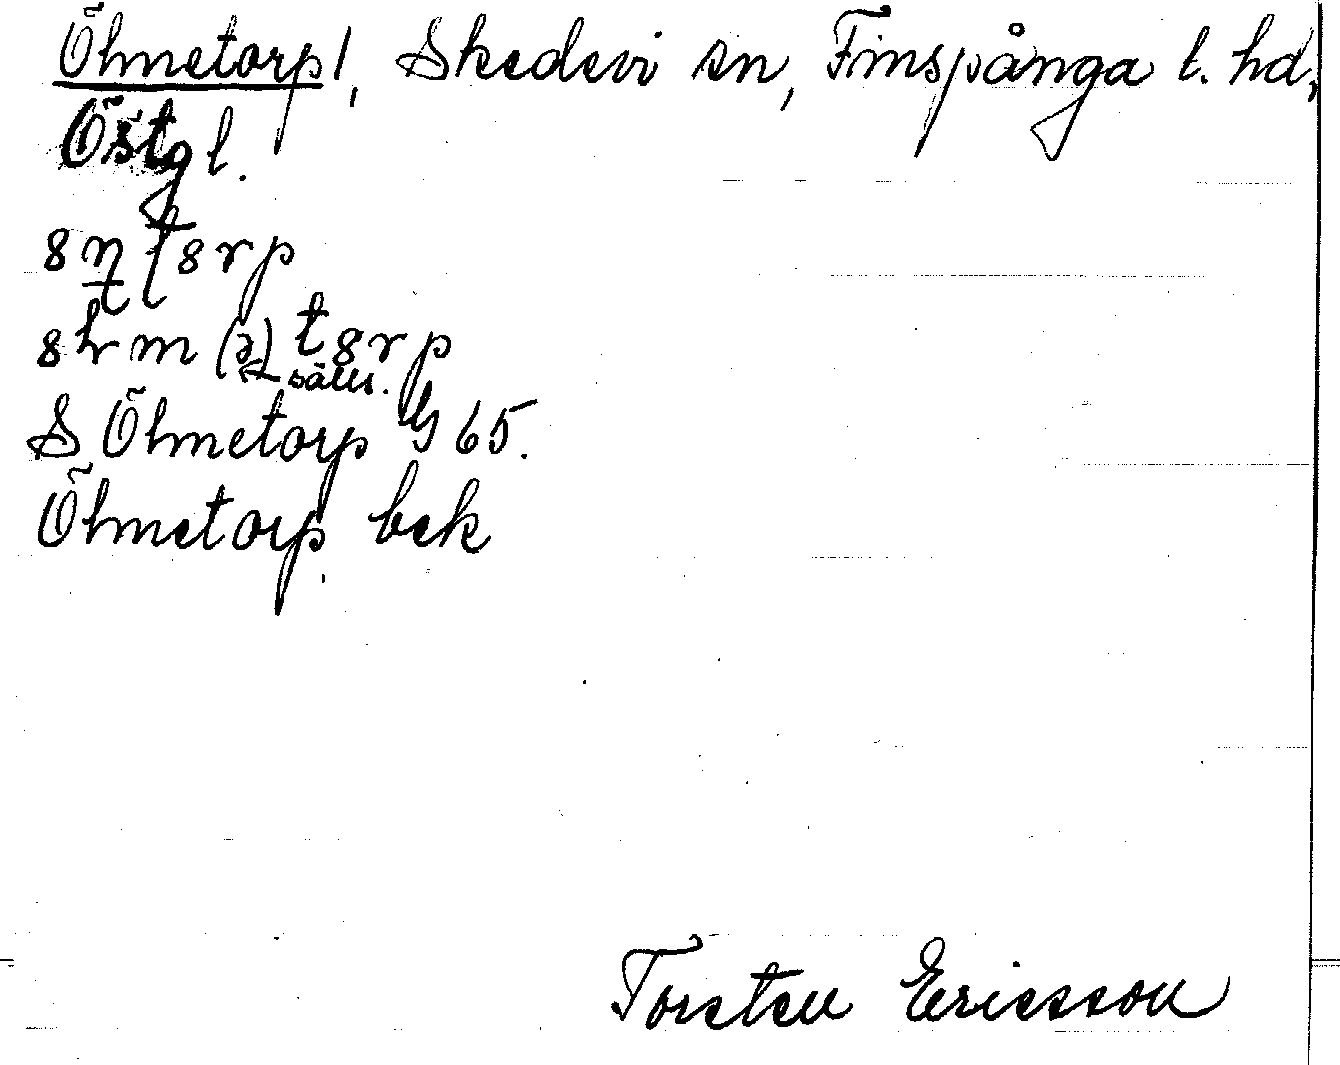 Ölmetorp 1, Skedevi sn, Finspånga l. hd,
Östgl.
sälls.
S Ölmetorp G 65.
Ölmetorp bek
Torsten Ericsson